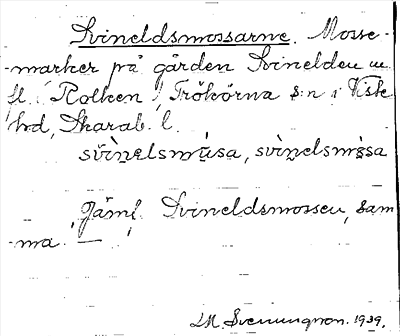 Svineldsmossarne. Mosse-
-marker på gården Svinelden m.
fl. i Rolken, Trökörna s:n i Viste
hd, Skarab. l.
svinelsmusa, svinelsmåsa
Jämf. Svineldsmossen, sam
-ma. —
LM. Svenungson. 1939.